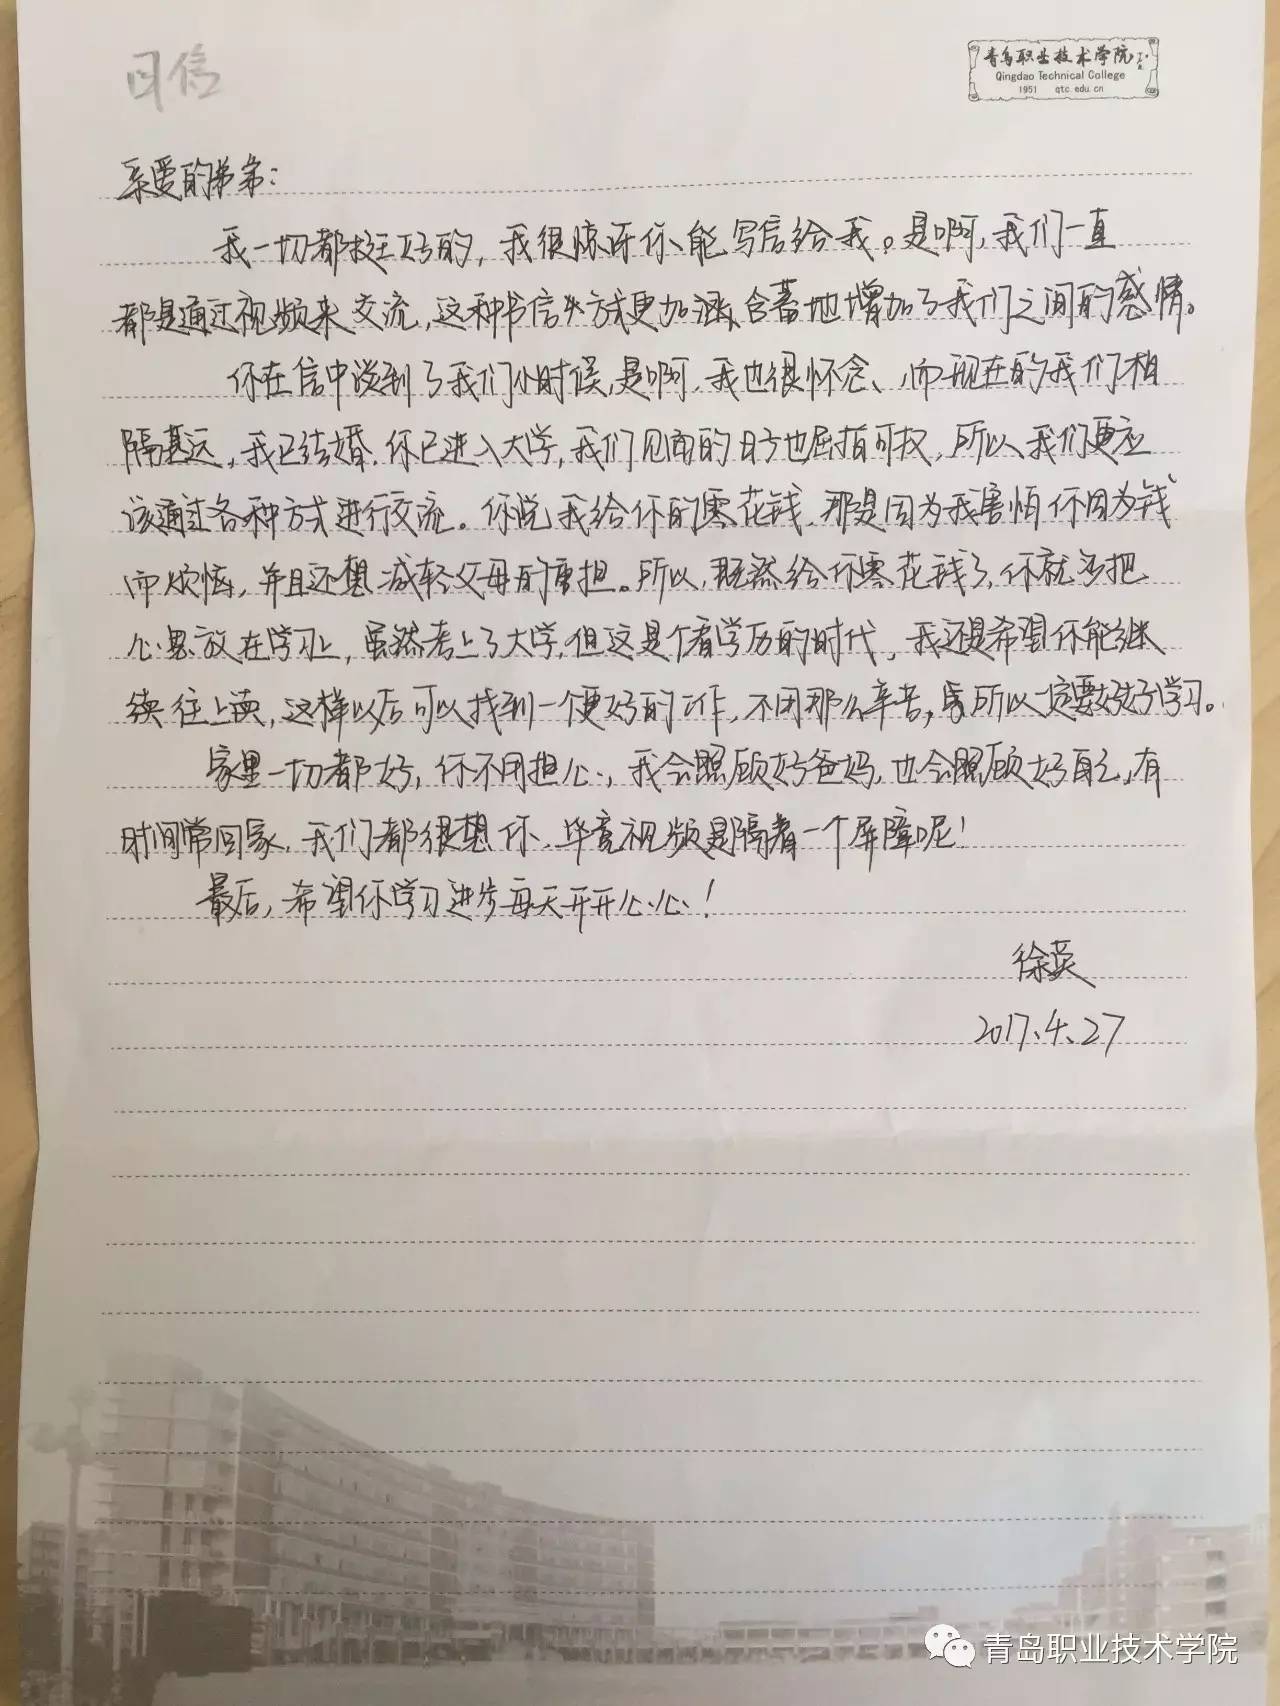 回信
青岛职业技术学院
Qingdao Technical College
1951 qtc.edu.cn
亲爱的弟弟：
我一切都挺好的，我很惊讶你能写信给我。是啊，我们一直
都是通过视频来交流，这种书信方式更加涵、含蓄地增加了我们之间的感情。
你在信中谈到了我们小时候，是啊，我也很怀念、而现在的我们相
隔甚远，我已结婚.你已进入大学，我们见面的日子也屈指可数，所以我们更应
该通过各种方式进行交流。你说我给你的零花钱，那是因为我害怕你因为钱
而烦恼，并且还想减轻父母的重担。所以，既然给你零花钱了，你就多把
心思放在学习上，虽然考上了大学，但这是个看学历的时代，我还是希望你能继
续往上读，这样以后可以找到一个更好的工作，不用那么辛苦，所以一定要好好学习。
家里一切都好，你不用担心，我会照顾好爸妈，也会照顾好自己，有
时间常回家，我们都很想你，毕竟视频是隔着一个屏障呢！
最后，希望你学习进步每天开开心心！
徐英
2017.4.27
青岛职业技术学院